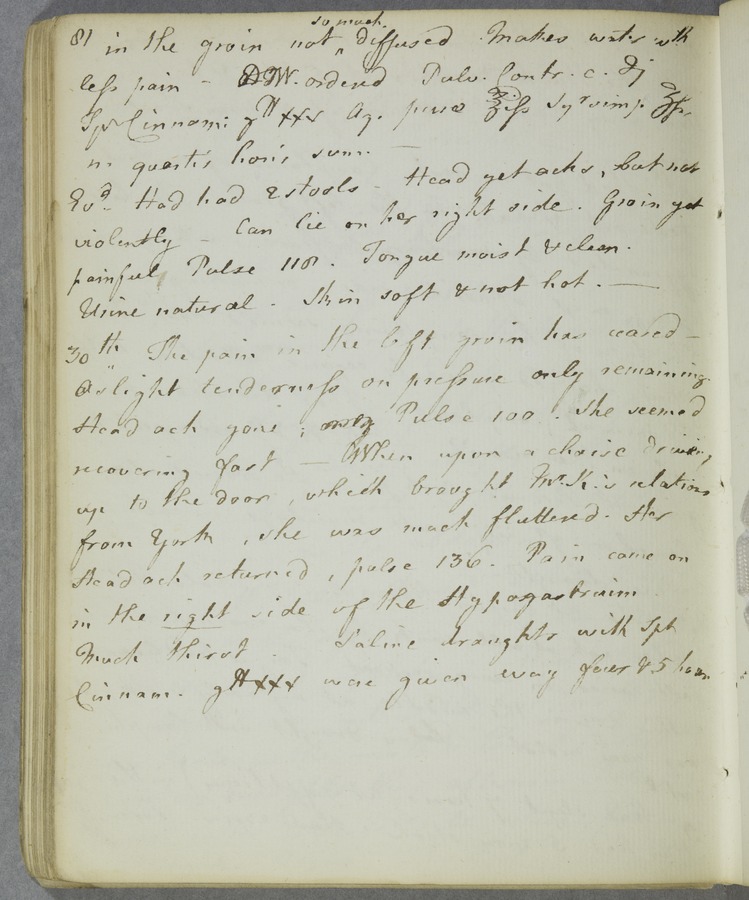 81 in the groin not so much diffused. Makes water wth
less pain - Dr W. ordered Pulv. Contr. c. ℈j
Spt Cinnam: gtt xxx Aq. puræ ℥iss Syr simp. ʒss.
m quartis horis sum. —
Evg. Had had 2 stools - Head yet achs, but not
violently - Can lie on her right side. Groin yet
painful Pulse 118. Tongue moist & clean.
Urine natural. Skin soft & not hot. —
30th The pain in the left groin has ceased -
a slight tenderness on pressure only remaining.
Head ach gone; Pulse 100. She seemed
recovering fast — When upon a chaise driving
up to the door, which brought Mr. K.'s relations
from York, she was much flutter'd. Her
Head ach returned, pulse 136. Pain came on
in the right side of the Hypogastrium
Much thirst. Saline draughts with Spt
Cinnam. gtt xxx were given every four & 5 hours